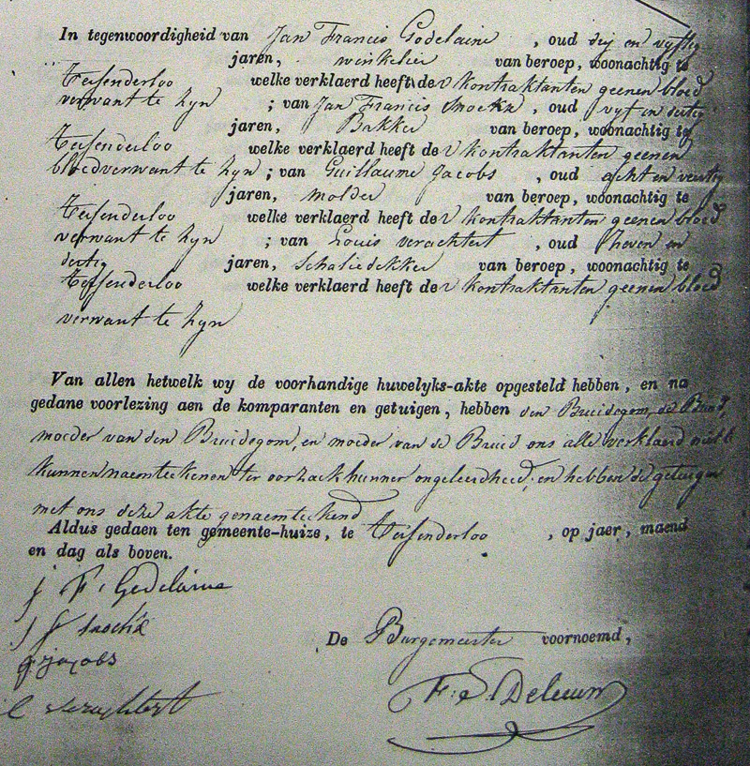 In tegenwoordigheid van Jan Francis Godelaine, oud en vyftig
jaren, winkelier van beroep, woonachtig te
Tessenderloo welke verklaerd heeft der kontraktanten geenen bloed
verwant te zyn; van Jan Francis Snoekx, oud vyf en dertig
jaren, Bakker van beroep, woonachtig te
Tessenderloo welke verklaerd heeft der kontraktanten geenen
bloedverwant te zyn; van Guillaume Jacobs, oud acht en veertig
jaren, molder van beroep, woonachtig te
Tessenderloo welke verklaerd heeft der kontraktanten geenen bloed
verwant te zyn; van Louis verachtert, oud zeven en
dertig jaren, Schaliedekker van beroep, woonachtig te
Tessenderloo welke verklaerd heeft der kontraktanten geenen bloed
verwant te zyn
Van allen hetwelk wy de voorhandige huwelyks-akte opgesteld hebben, en na
gedane voorlezing aen de komparanten en getuigen, hebben den Bruidegom, de Bruid,
moeder van den Bruidegom, en moeder van de Bruid ons alle verklaerd niet te
kunnen naemteekenen ter oorzack hunner ongeleerdheid, en hebben de getuigen
met ons deze akte genaemteekend
Aldus gedaen ten gemeente-huize, te Tessenderloo, op jaer, maend
en dag als boven.
j F: Godelaine
j f snoekx
g jacobs
De Burgemeester voornoemd,
L verachtert